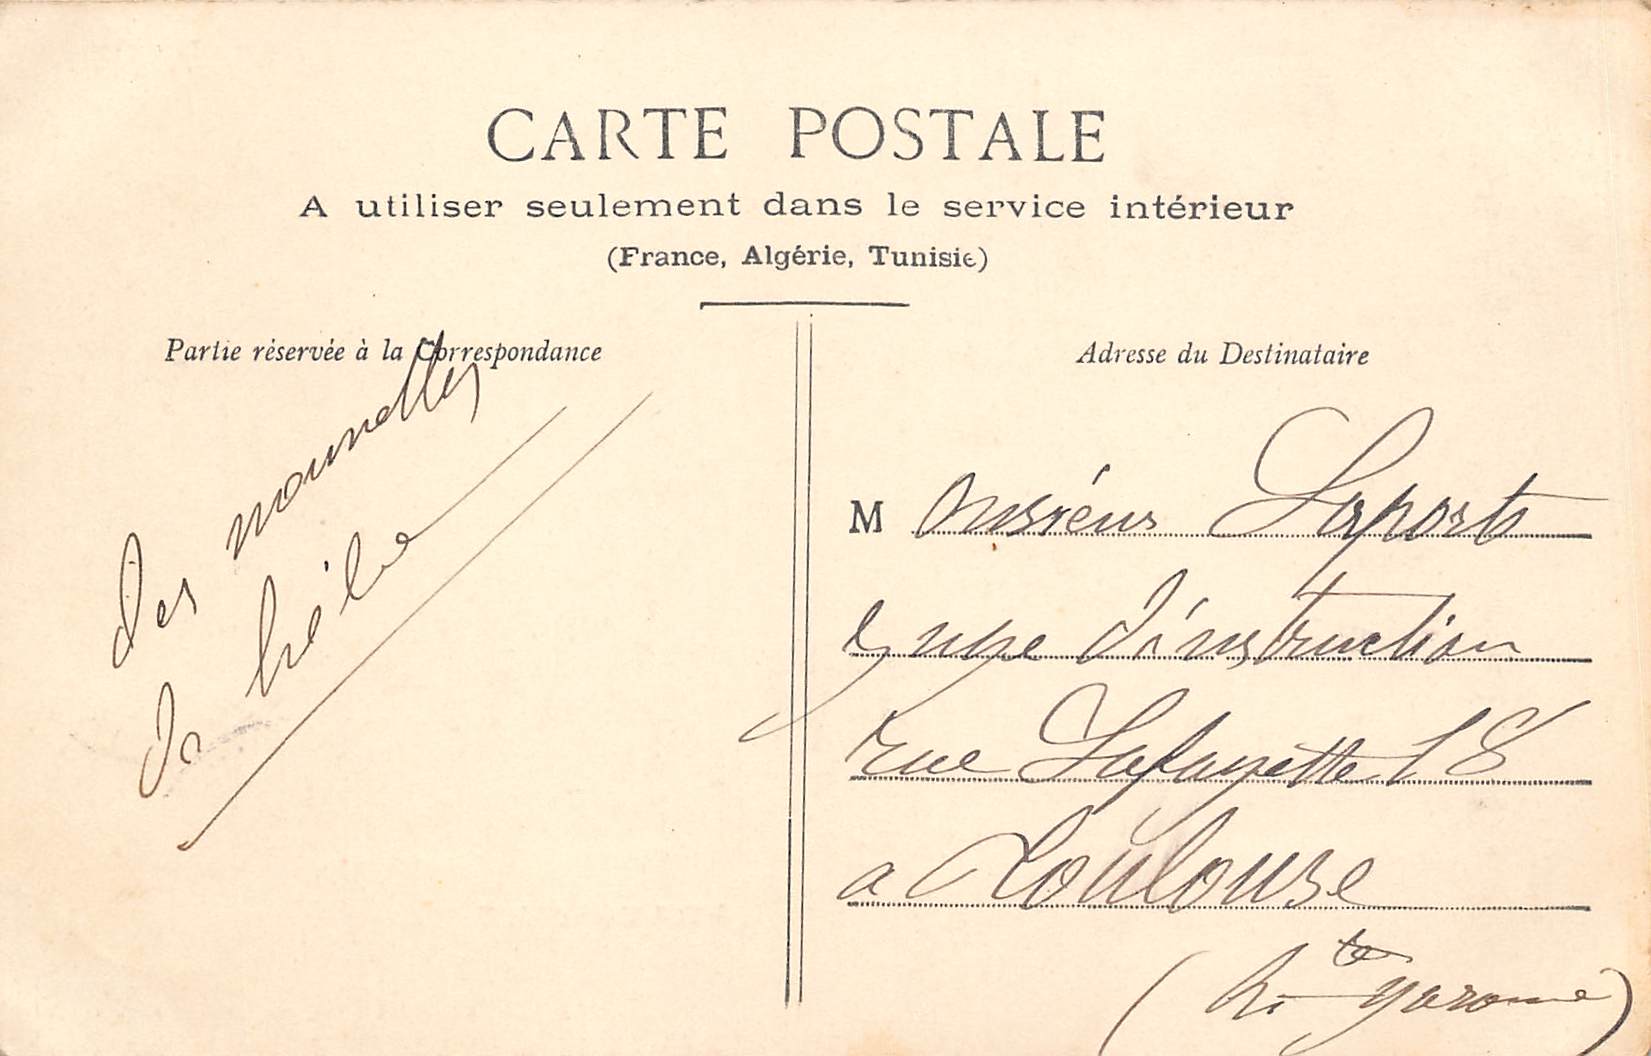 CARTE POSTALE
A utiliser seulement dans le service intérieur
(France, Algérie, Tunisie)
Partie réservée à la Correspondance
des nounelles
da
Adresse du Destinataire
Monsiéur Laporte
d'instruction
rue Lafayette 18
a Toulouse
(hte garonne)